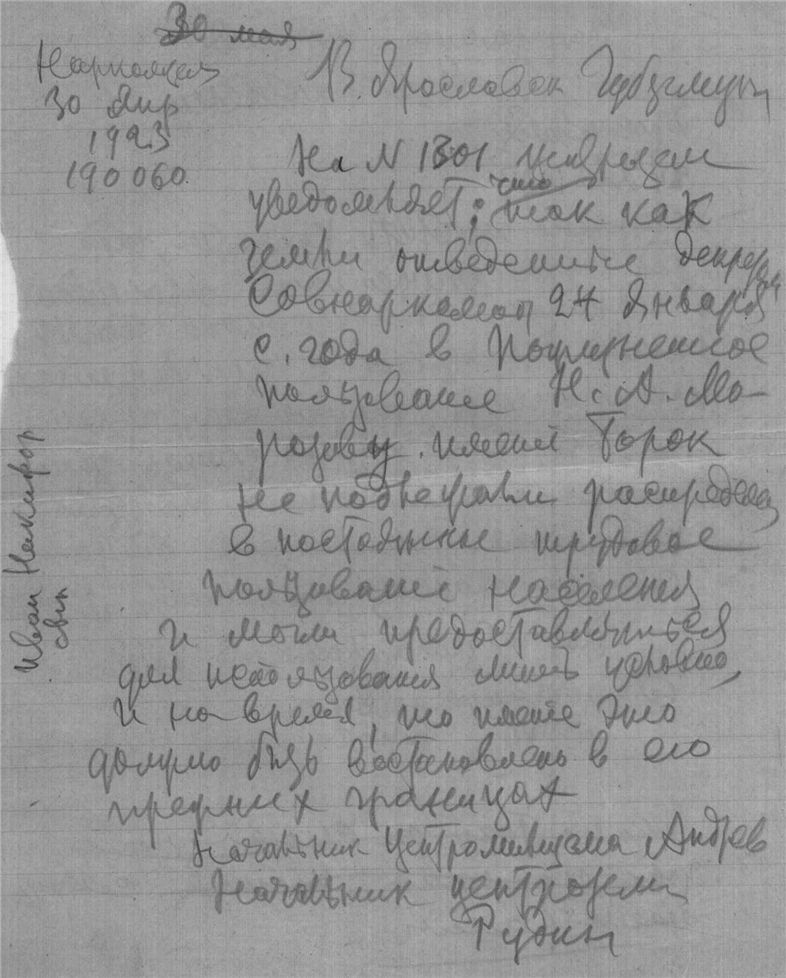 30 мая
Наркомзем
30 Янв
1923
190060
В. Ярославск Губземупр
На N 1301
уведомляет, что так как
земли отведенные декретом
Совнаркома 24 Января
с. года в пожизненное
пользование Н. А. Мо-
розову имени Борок
не подлежали распределен
в постоянное трудовое
пользование населения
и могли предоставляться
для использования лишь условно,
и на время, то имение это
должно быть востановлено в его
прежних границах
Начальник Андреев
Начальник центрозем
Рудин
Иван Никифор